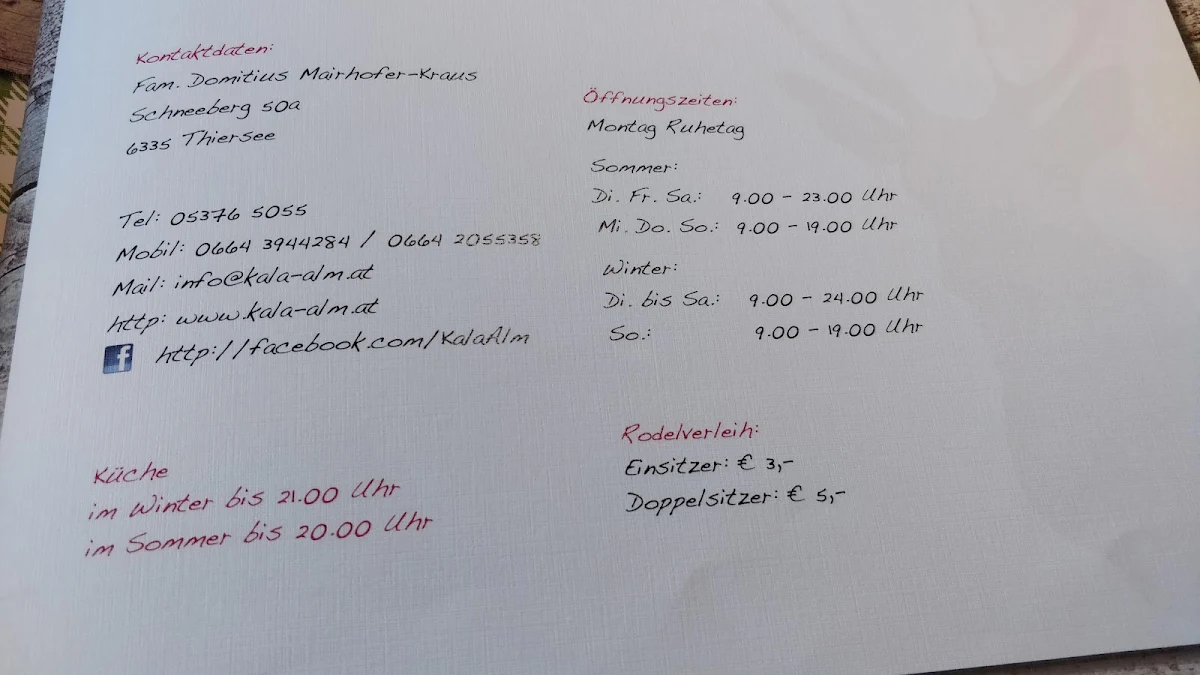 Kontaktdaten:
Fam. Domitius Mairhofer-Kraus
Schneeberg 50a
6335 Thiersee
Tel: 05376 5055
Mobil: 0664 3944284 / 0664 2055358
Mail: info@kala-alm.at
http: www.kala-alm.at
f http://facebook.com/KalaAlm
Küche
im Winter bis 21.00 Uhr
im Sommer bis 20.00 Uhr
Öffnungszeiten:
Montag Ruhetag
Sommer:
Di. Fr. Sa.: 9.00 - 23.00 Uhr
Mi. Do. So.: 9.00 - 19.00 Uhr
Winter:
Di. bis Sa.: 9.00 - 24.00 Uhr
So.: 9.00 - 19.00 Uhr
Rodelverleih:
Einsitzer: € 3,-
Doppelsitzer: € 5,-